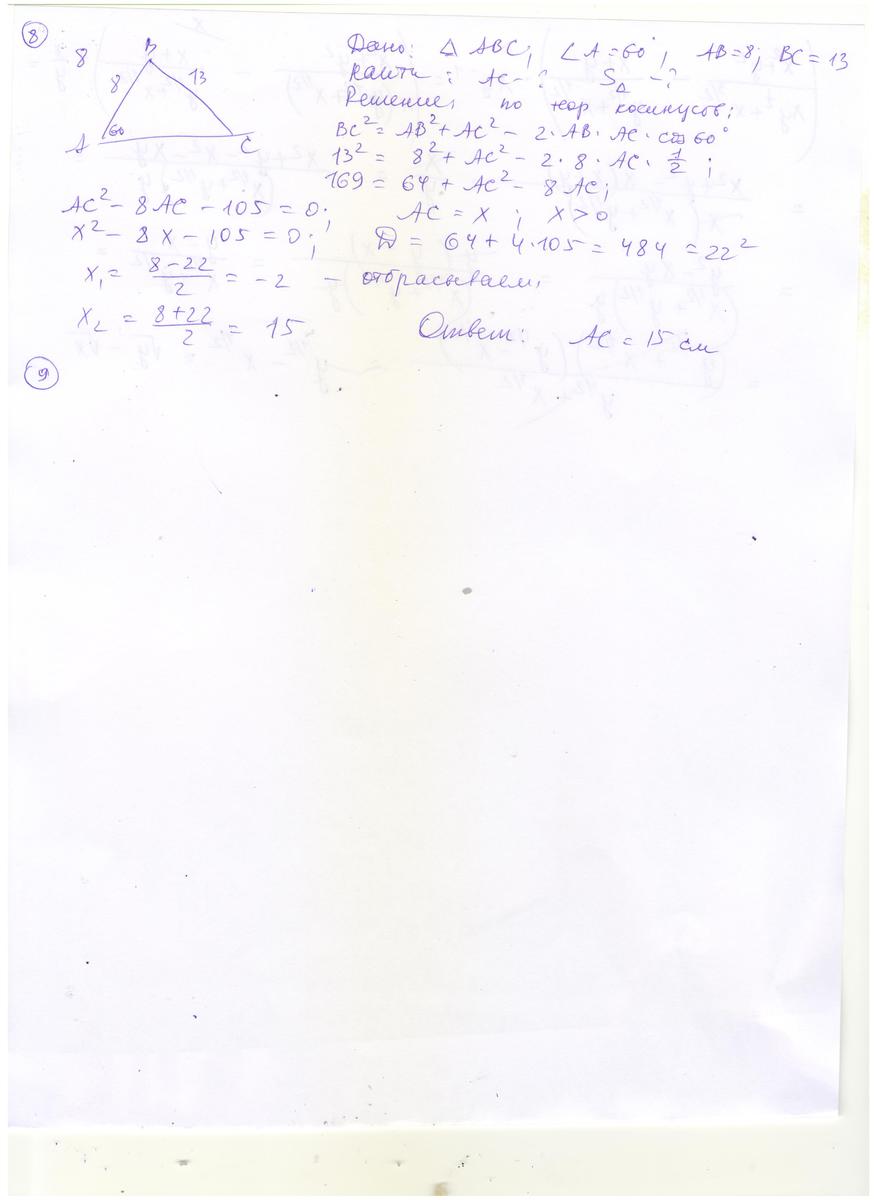 8
8
B
8
13
A
60
C
Дано: Δ ABC; ∠A = 60°; AB = 8; BC = 13
Найти: AC - ? S_Δ - ?
Решение, по теор косинусов;
BC² = AB² + AC² - 2·AB·AC·cos 60°
13² = 8² + AC² - 2·8·AC·1/2;
169 = 64 + AC² - 8AC;
AC² - 8AC - 105 = 0; AC = x; x > 0
x² - 8x - 105 = 0; D = 64 + 4·105 = 484 = 22²
x₁ = (8-22)/2 = -2 - отбрасываем,
x₂ = (8+22)/2 = 15 Ответ: AC = 15 см
9